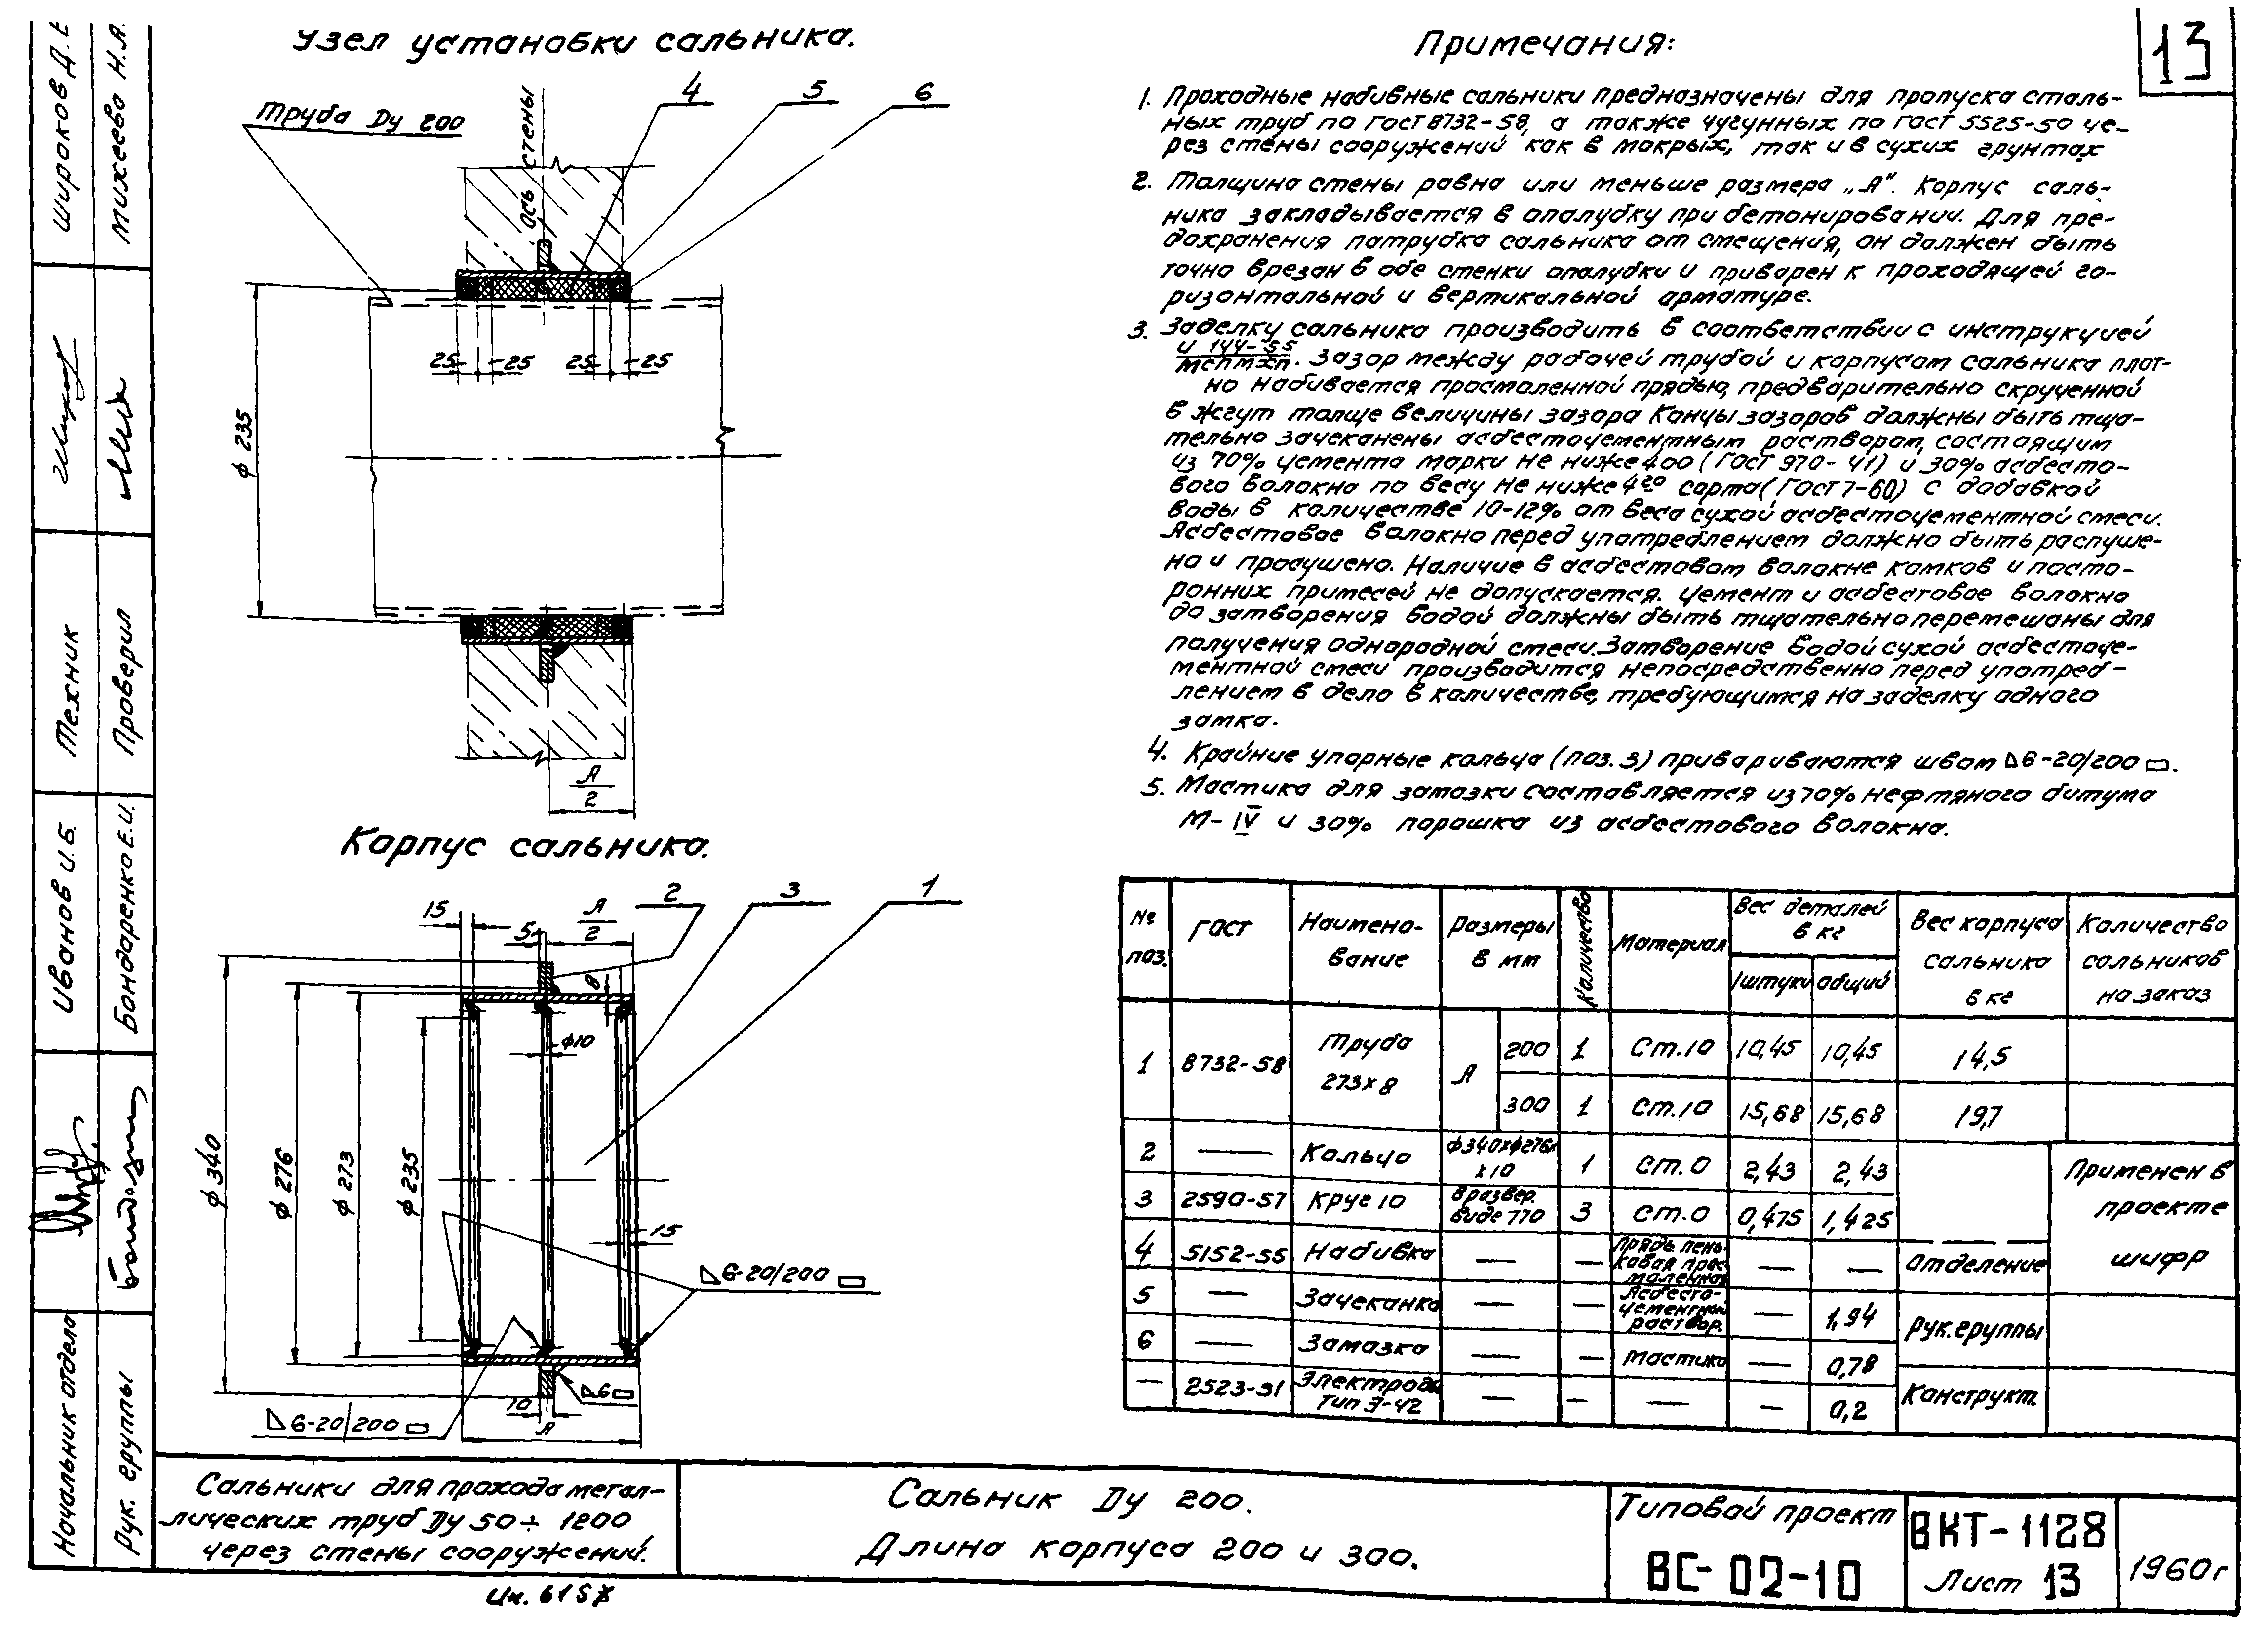 13
Узел установки сальника.
Труба Ду 200
Ось стены
4
5
6
25
25
25
25
ϕ 235
А
2
Корпус сальника.
2
3
1
15
5
А
2
8
ϕ10
ϕ 340
ϕ 276
ϕ 273
ϕ 235
15
6-20/200
6-20/200
6
10
А
Примечания:
1. Проходные набивные сальники предназначены для пропуска сталь-
ных труб по ГОСТ 8732-58, а также чугунных по ГОСТ 5525-50 че-
рез стены сооружений как в мокрых, так и в сухих грунтах
2. Толщина стены равна или меньше размера „А". Корпус саль-
ника закладывается в опалубку при бетонировании. Для пре-
дохранения патрубка сальника от смещения, он должен быть
точно врезан в обе стенки опалубки и приварен к проходящей го-
ризонтальной и вертикальной арматуре.
3. Заделку сальника производить в соответствии с инструкцией
И 144-55
МСПМХП. Зазор между рабочей трубой и корпусом сальника плот-
но набивается просмоленной прядью, предварительно скрученной
в жгут толще величины зазора Концы зазоров должны быть тща-
тельно зачеканены асбестоцементным раствором, состоящим
из 70% цемента марки не ниже 400 (ГОСТ 970-41) и 30% асбесто-
вого волокна по весу не ниже 4го сорта (ГОСТ 7-60) с добавкой
воды в количестве 10-12% от веса сухой асбестоцементной смеси.
Асбестовое волокно перед употреблением должно быть распуше-
но и просушено. Наличие в асбестовом волокне комков и посто-
ронних примесей не допускается. Цемент и асбестовое волокно
до затворения водой должны быть тщательно перемешаны для
получения однородной смеси. Затворение водой сухой асбестоце-
ментной смеси производится непосредственно перед употреб-
лением в дело в количестве, требующимся на заделку одного
замка.
4. Крайние упорные кольца (поз. 3) привариваются швом 6-20/200.
5. Мастика для замазки составляется из 70% нефтяного битума
М-IV и 30% порошка из асбестового волокна.
№ поз. ГОСТ Наимено-вание Размеры в мм Количество Материал Вес деталей в кг 1 штуки общий Вес корпуса сальника в кг Количество сальников на заказ
1 8732-58 Труба 273х8 А 200 1 Ст.10 10,45 10,45 14,5
300 1 Ст.10 15,68 15,68 19,7
2 — Кольцо ϕ340хϕ276 х10 1 Ст.0 2,43 2,43
3 2590-57 Круг 10 в развер. виде 770 3 Ст.0 0,475 1,425
4 5152-55 Набивка — — Прядь пень-ковая прос-маленная — —
5 — Зачеканка — — Асбесто-цементный раствор. — 1,94
6 — Замазка — — Мастика — 0,78
— 2523-51 Электроды тип Э-42 — — — — 0,2
Применен в
проекте
шифр
Отделение
Рук. группы
Конструкт.
Широков Д.
Михеева Н.А.
Техник
Проверил
Иванов И.Б.
Бондаренко Е.И.
Начальник отдела
Рук. группы
Сальники для прохода метал-
лических труб Ду 50÷1200
через стены сооружений.
Сальник Ду 200.
Длина корпуса 200 и 300.
Типовой проект
ВС-02-10
ВКТ-1128
Лист 13
1960г